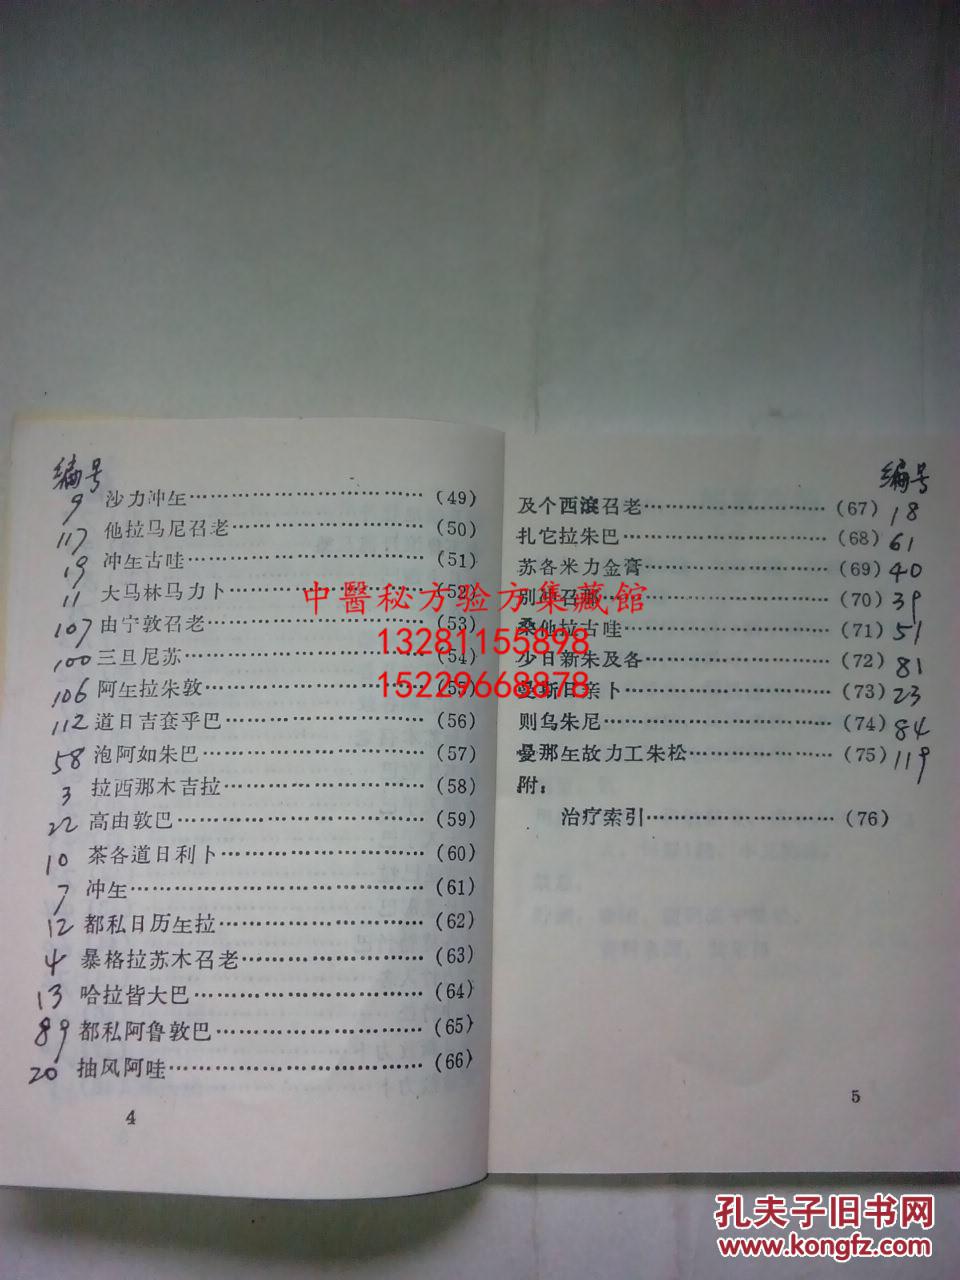 编号
9 沙力冲生………………………… (49)
117 他拉马尼召老……………………… (50)
19 冲生古哇………………………… (51)
11 大马林马力卜……………………… (52)
107 由宁敦召老……………………… (53)
100 三旦尼苏………………………… (54)
106 阿生拉朱敦……………………… (55)
112 道日吉套乎巴……………………… (56)
58 泡阿如朱巴……………………… (57)
3 拉西那木吉拉……………………… (58)
22 高由敦巴………………………… (59)
10 茶各道日利卜……………………… (60)
7 冲生……………………………… (61)
12 都私日历生拉……………………… (62)
4 暴格拉苏木召老…………………… (63)
13 哈拉皆大巴……………………… (64)
89 都私阿鲁敦巴……………………… (65)
20 抽风阿哇………………………… (66)
4
编号
及个西滚召老……………………… (67) 18
扎它拉朱巴……………………… (68) 61
苏各米力金膏……………………… (69) 40
(70) 39
桑他拉古哇……………………… (71) 51
少日新朱及各……………………… (72) 81
曼斯日亲卜……………………… (73) 23
则乌朱尼………………………… (74) 84
曼那生故力工朱松………………… (75) 119
附:
治疗索引………………………… (76)
5
中醫秘方验方集藏館
13281155898
15229668878
孔夫子旧书网
www.kongfz.com